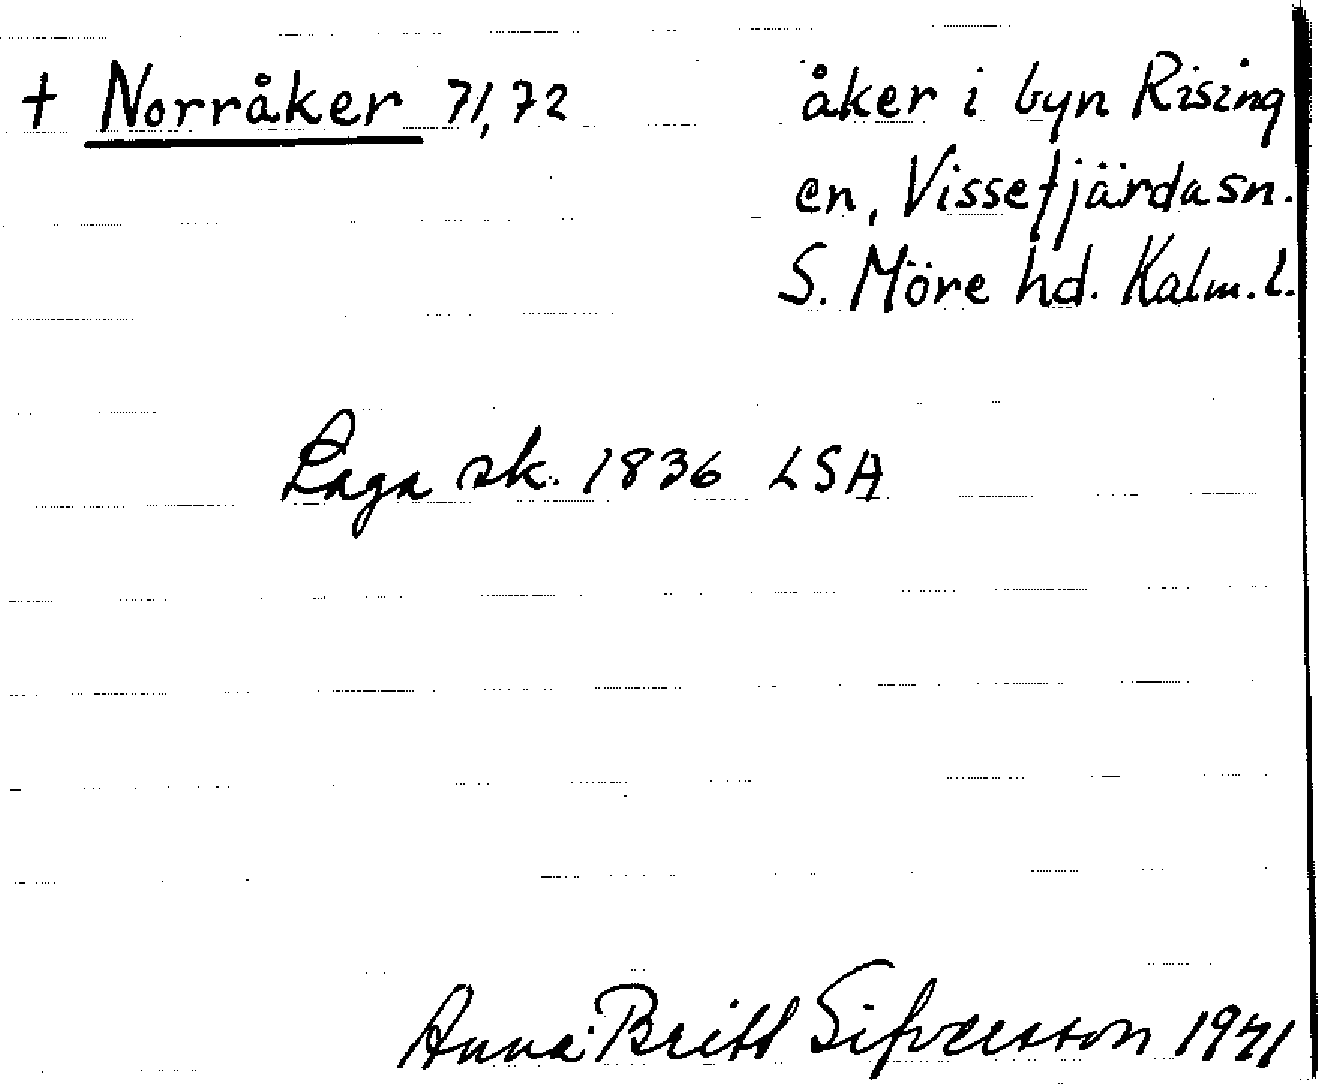 † Norråker 71,72 åker i byn Rising
en, Vissefjärda sn.
S. Möre hd. Kalm. l.
Laga sk. 1836 LSA
Anna-Britt Sifversson 1971